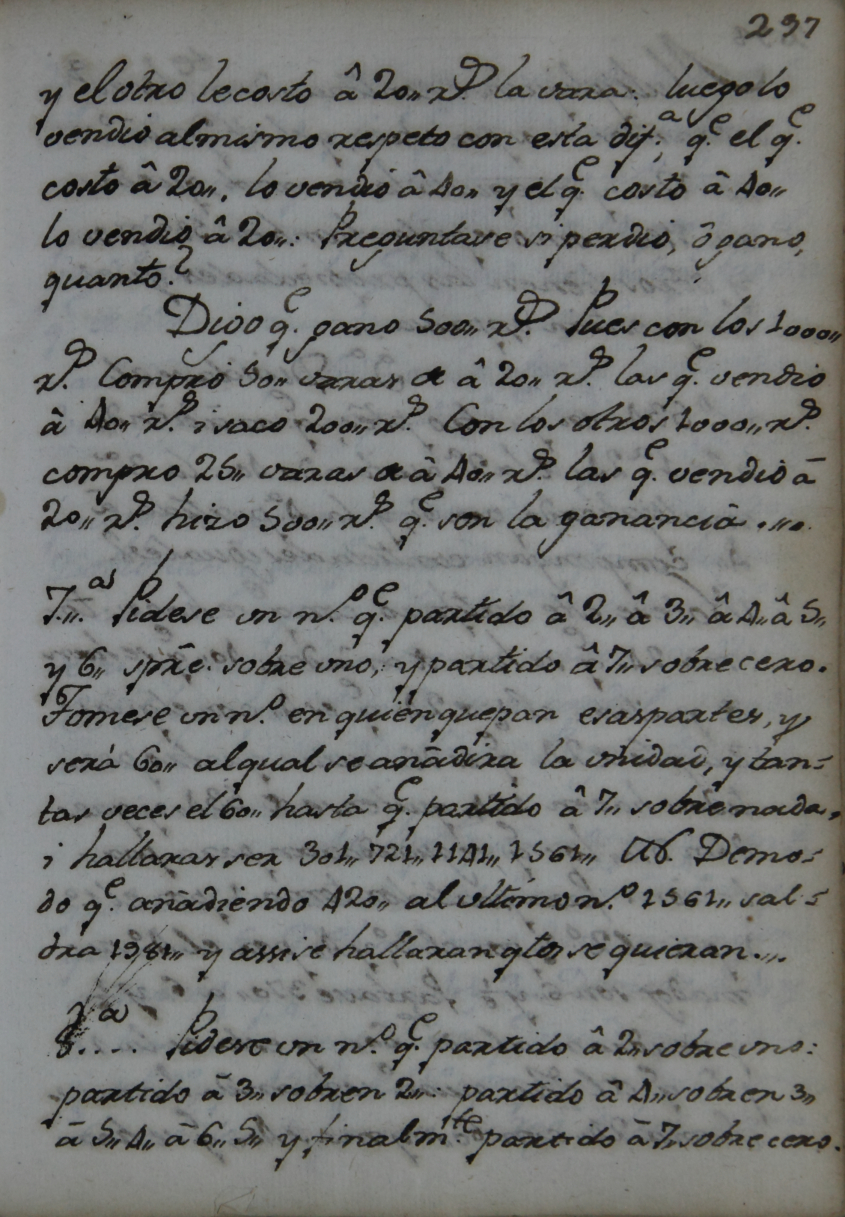 237
y el otro le costo â 20,, rˢ. la vara: luego lo
vendio al mismo respeto con esta difᵃ. qᵉ. el qᵉ.
costo â 20,,. lo vendio â 40,, y el qᵉ. costo â 40,,
lo vendio â 20,,: Preguntase si perdio, ô gano,
quanto?
Digo qᵉ. gano 500,, rˢ. Pues con los 1000,,
rˢ. Compro 50,, varas â 20,, rˢ. las qᵉ. vendio
â 40,, rˢ. i saco 200,, rˢ. Con los otros 1000,, rˢ.
compro 25,, varas â 40,, rˢ. las qᵉ. vendio ā
20,, rˢ. hizo 500,, rˢ. qᵉ. son la ganancia....
7.,,ᵃˢ Pidese un n.º qᵉ. partido â 2,, â 3,, â 4,, â 5,,
y 6,, sp̄re. sobre uno, y partido â 7,, sobre cero.
Tomese un n.º en quien quepan esas partes, y
será 60,, al qual se anādira la unidad, y tan-
tas veces el 60,, hasta qᵉ. partido â 7,, sobre nada,
i hallaras ser 301,, 721,, 1141,, 1561,, Demo-
do qᵉ. anādiendo 420,, al ultimo n.º 1561,, sal-
dra 1981,, y assi se hallaran qtos se quieran...
8.... Pidese un n.º qᵉ. partido â 2,, sobre uno:
partido ā 3,, sobren 2,,: partido â 4,, sobren 3,,
ā 5,, 4,, ā 6,, 5,, y finalmᵗᵉ. partido ā 7,, sobre cero.